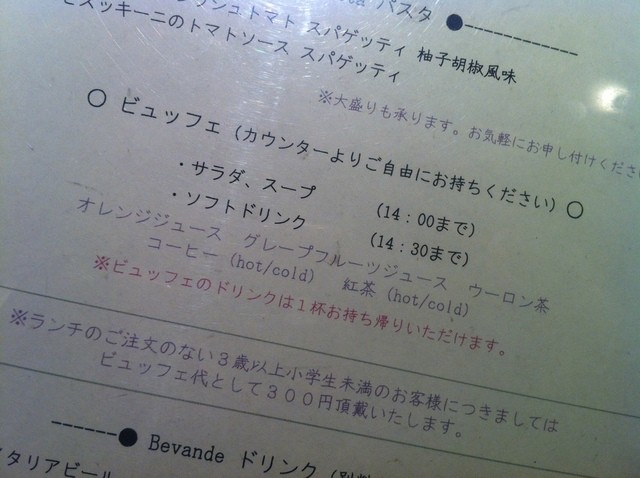 パスタ ●-----------
ッシュトマト スパゲッティ 柚子胡椒風味
ズッキーニのトマトソース スパゲッティ
※大盛りも承ります。お気軽にお申し付けくださ
○ ビュッフェ (カウンターよりご自由にお持ちください) ○
・サラダ、スープ (14：00まで)
・ソフトドリンク (14：30まで)
オレンジジュース グレープフルーツジュース ウーロン茶
コーヒー (hot/cold) 紅茶 (hot/cold)
※ビュッフェのドリンクは１杯お持ち帰りいただけます。
※ランチのご注文のない３歳以上小学生未満のお客様につきましては
ビュッフェ代として３００円頂戴いたします。
------● Bevande ドリンク
タリアビール